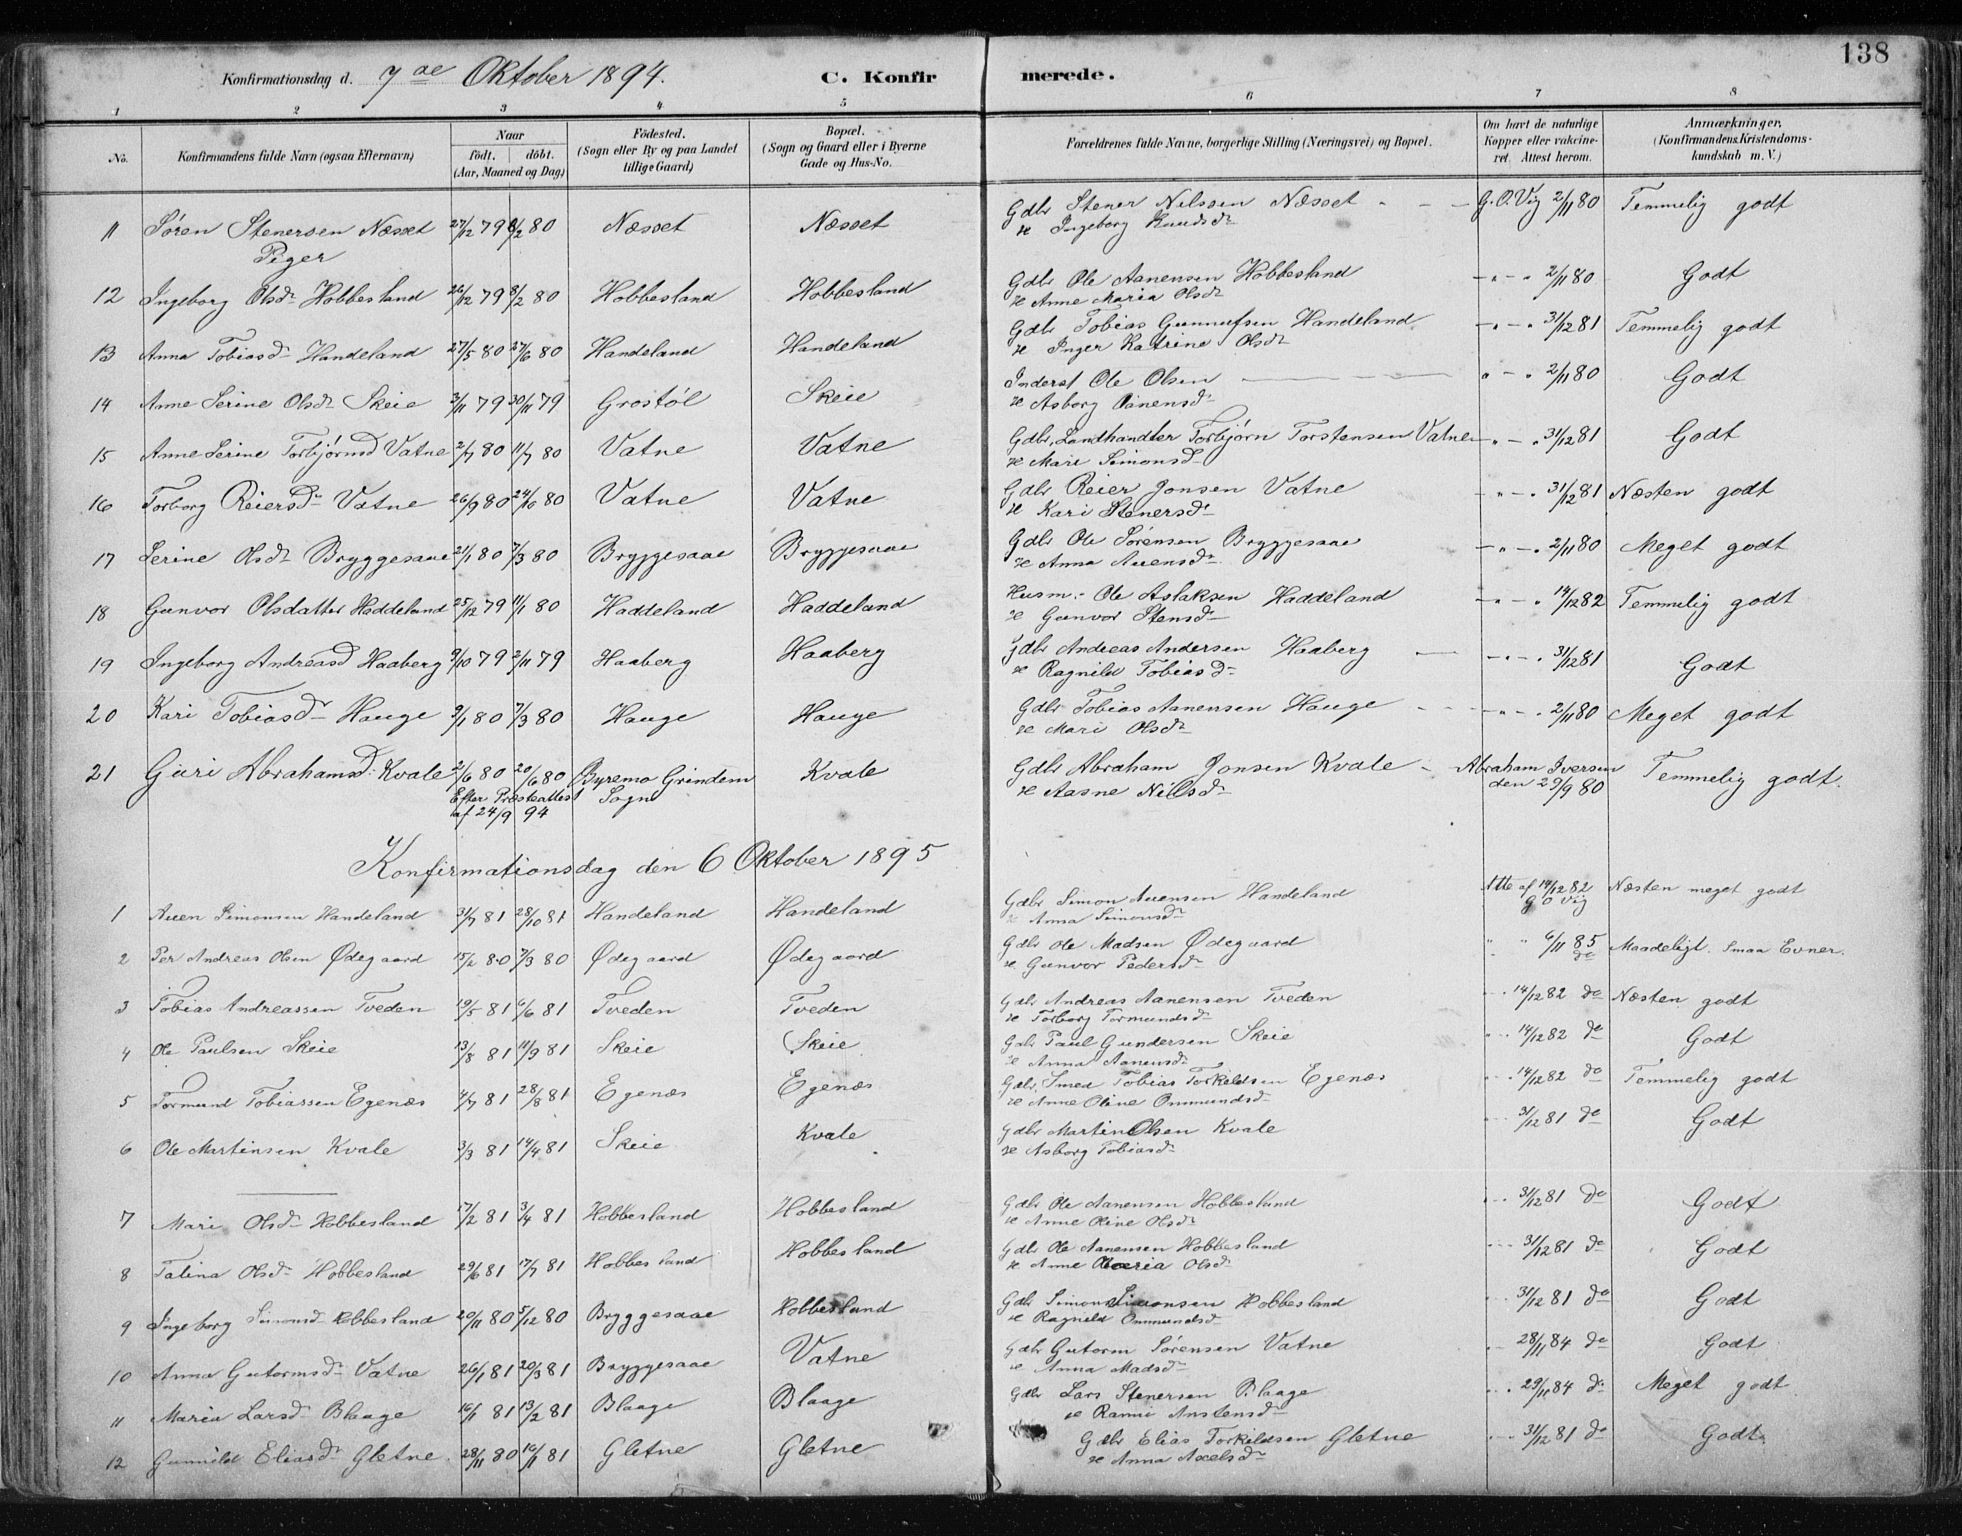 138
Konfirmationsdag d. 7de Oktober 1894. C. Konfirmerede.
1 2 3 4 5 6 7 8
No. Konfirmandens fulde Navn (ogsaa Efternavn) Naar födt. döbt. (Aar, Maaned og Dag) Födested. (Sogn eller By og paa Landet tillige Gaard) Bopæl. (Sogn og Gaard eller i Byerne Gade og Hus-No. Forældrenes fulde Navne, borgerlige Stilling (Næringsvei) og Bopæl. Om havt de naturlige Kopper eller vakcineret. Attest herom. Anmærkninger. (Konfirmandens Kristendomskundskab m. V.)
11 Søren Stenersen Næsset 27/12 79 8/2 80 Næsset Næsset Gdbr Stener Nilssen Næsset - - - G. O. Vig 2/11 80 Temmelig godt
H Ingeborg Knudsdr
Piger
12 Ingeborg Olsdr Hobbesland 26/12 79 8/2 80 Hobbesland Hobbesland Gdbr Ole Aanensen Hobbesland - " - " 2/11 80 Godt
H Anne Maria Olsdr
13 Anna Tobiasdr Handeland 27/5 80 27/6 80 Handeland Handeland Gdbr Tobias Gunnufsen Handeland - " - " 31/12 81 Temmelig godt
H Inger Katrine Olsdr
14 Anne Serine Olsdr Skeie 3/11 79 30/11 79 Grostøl Skeie Inderst Ole Olsen " - " 2/11 80 Godt
H Asborg Aanensdr
15 Anne Serine Torbjørnsd Vatne 2/7 80 11/7 80 Vatne Vatne Gdbr, Landhandler Torbjørn Torstensen Vatne - " - " 31/12 81 Godt
H Mari Simonsd
16 Torborg Reiersdr Vatne 26/9 80 24/10 80 Vatne Vatne Gdbr Reier Jonsen Vatne - " - " 31/12 81 Næsten godt
H Kari Stenersdr
17 Serine Olsdr Bryggesaae 21/1 80 7/3 80 Bryggesaae Bryggesaae Gdbr Ole Sørensen Bryggesaae - " - " 2/11 80 Meget godt
H Anna Auensdr
18 Gunvor Olsdatter Haddeland 25/12 79 11/1 80 Haddeland Haddeland Husm. Ole Aslaksen Haddeland - " - " 14/12 82 Temmelig godt
H Gunvor Stensdr
19 Ingeborg Andreasd Haaberg 9/10 79 2/11 79 Haaberg Haaberg Gdbr Andreas Andersen Haaberg - " - " 31/12 81 Godt
H Ragnild Tobiasdr
20 Kari Tobiasdr Hauge 9/1 80 7/3 80 Hauge Hauge Gdbr Tobias Aanensen Hauge - " - " 2/11 80 Meget godt
H Mari Olsdr
21 Guri Abrahamsd: Kvale 2/6 80 20/6 80 Byremo Grindem Kvale Gdbr Abraham Jonsen Kvale - Abraham Iversen Temmelig godt.
Efter Præsteattest Sogn H Aasne Nilsdr den 29/9 80
af 24/9 94
Konfirmationsdag den 6 Oktober 1895
1 Auen Simonsen Handeland 31/7 81 28/10 81 Handeland Handeland Gdbr Simon Auensen Handeland Atte af 14/12 82 Næsten meget godt
H Anna Simonsdr G O Vig
2 Per Andreas Olsen Ødegaard 15/2 80 7/3 80 Ødegaard Ødegaard Gdbr Ole Madsen Ødegaard " " 6/11 85 Maadeligt. Smaa Evner.
H Gunvor Pedersdr do
3 Tobias Andreassen Tveden 19/5 81 6/6 81 Tveden Tveden Gdbr Andreas Aanensen Tveden " 14/12 82 do Næsten godt
H Torborg Tormundsdr
4 Ole Paulsen Skeie 13/8 81 11/9 81 Skeie Skeie Gdbr Paul Gundersen Skeie " 14/12 82 do Godt
H Anna Aanensdr
5 Tormund Tobiassen Egenæs 4/7 81 28/8 81 Egenæs Egenæs Gdbr, Smed Tobias Torkildsen Egenæs " 14/12 82 do Temmelig godt
H Anne Oline Ommundsdr
6 Ole Martinsen Kvale 3/3 81 14/4 81 Skeie Kvale Gdbr Martin Olsen Kvale " 31/12 81 do Godt
H Asborg Tobiasdr
7 Mari Olsdr Hobbesland 17/2 81 3/4 81 Hobbesland Hobbesland Gdbr Ole Aanensen Hobbesland " 31/12 81 do Godt
H Anne Oline Olsdr
8 Talina Olsdr Hobbesland 29/6 81 17/7 81 Hobbesland Hobbesland Gdbr Ole Aanensen Hobbesland " 31/12 81 do Godt
H Anne Maria Olsdr
9 Ingeborg Simonsdr Hobbesland 20/11 80 5/12 80 Bryggesaae Hobbesland Gdbr Simon Simonsen Hobbesland " 31/12 81 do Godt
H Ragnild Ommundsdr
10 Anna Gutormsdr Vatne 26/1 81 20/3 81 Bryggesaae Vatne Gdbr Gutorm Sørensen Vatne " 28/11 84 do Godt
H Anna Madsdr
11 Maria Larsdr Blaage 16/1 81 13/2 81 Blaage Blaage Gdbr Lars Stenersen Blaage " 29/11 84 do Meget godt
H Ranni Anstensdr
12 Gunnild Eliasdr Gletne 28/11 80 16/1 81 Gletne Gletne Gdbr Elias Torkildsen Gletne " 31/12 81 do Godt
H Anna Axelsdr